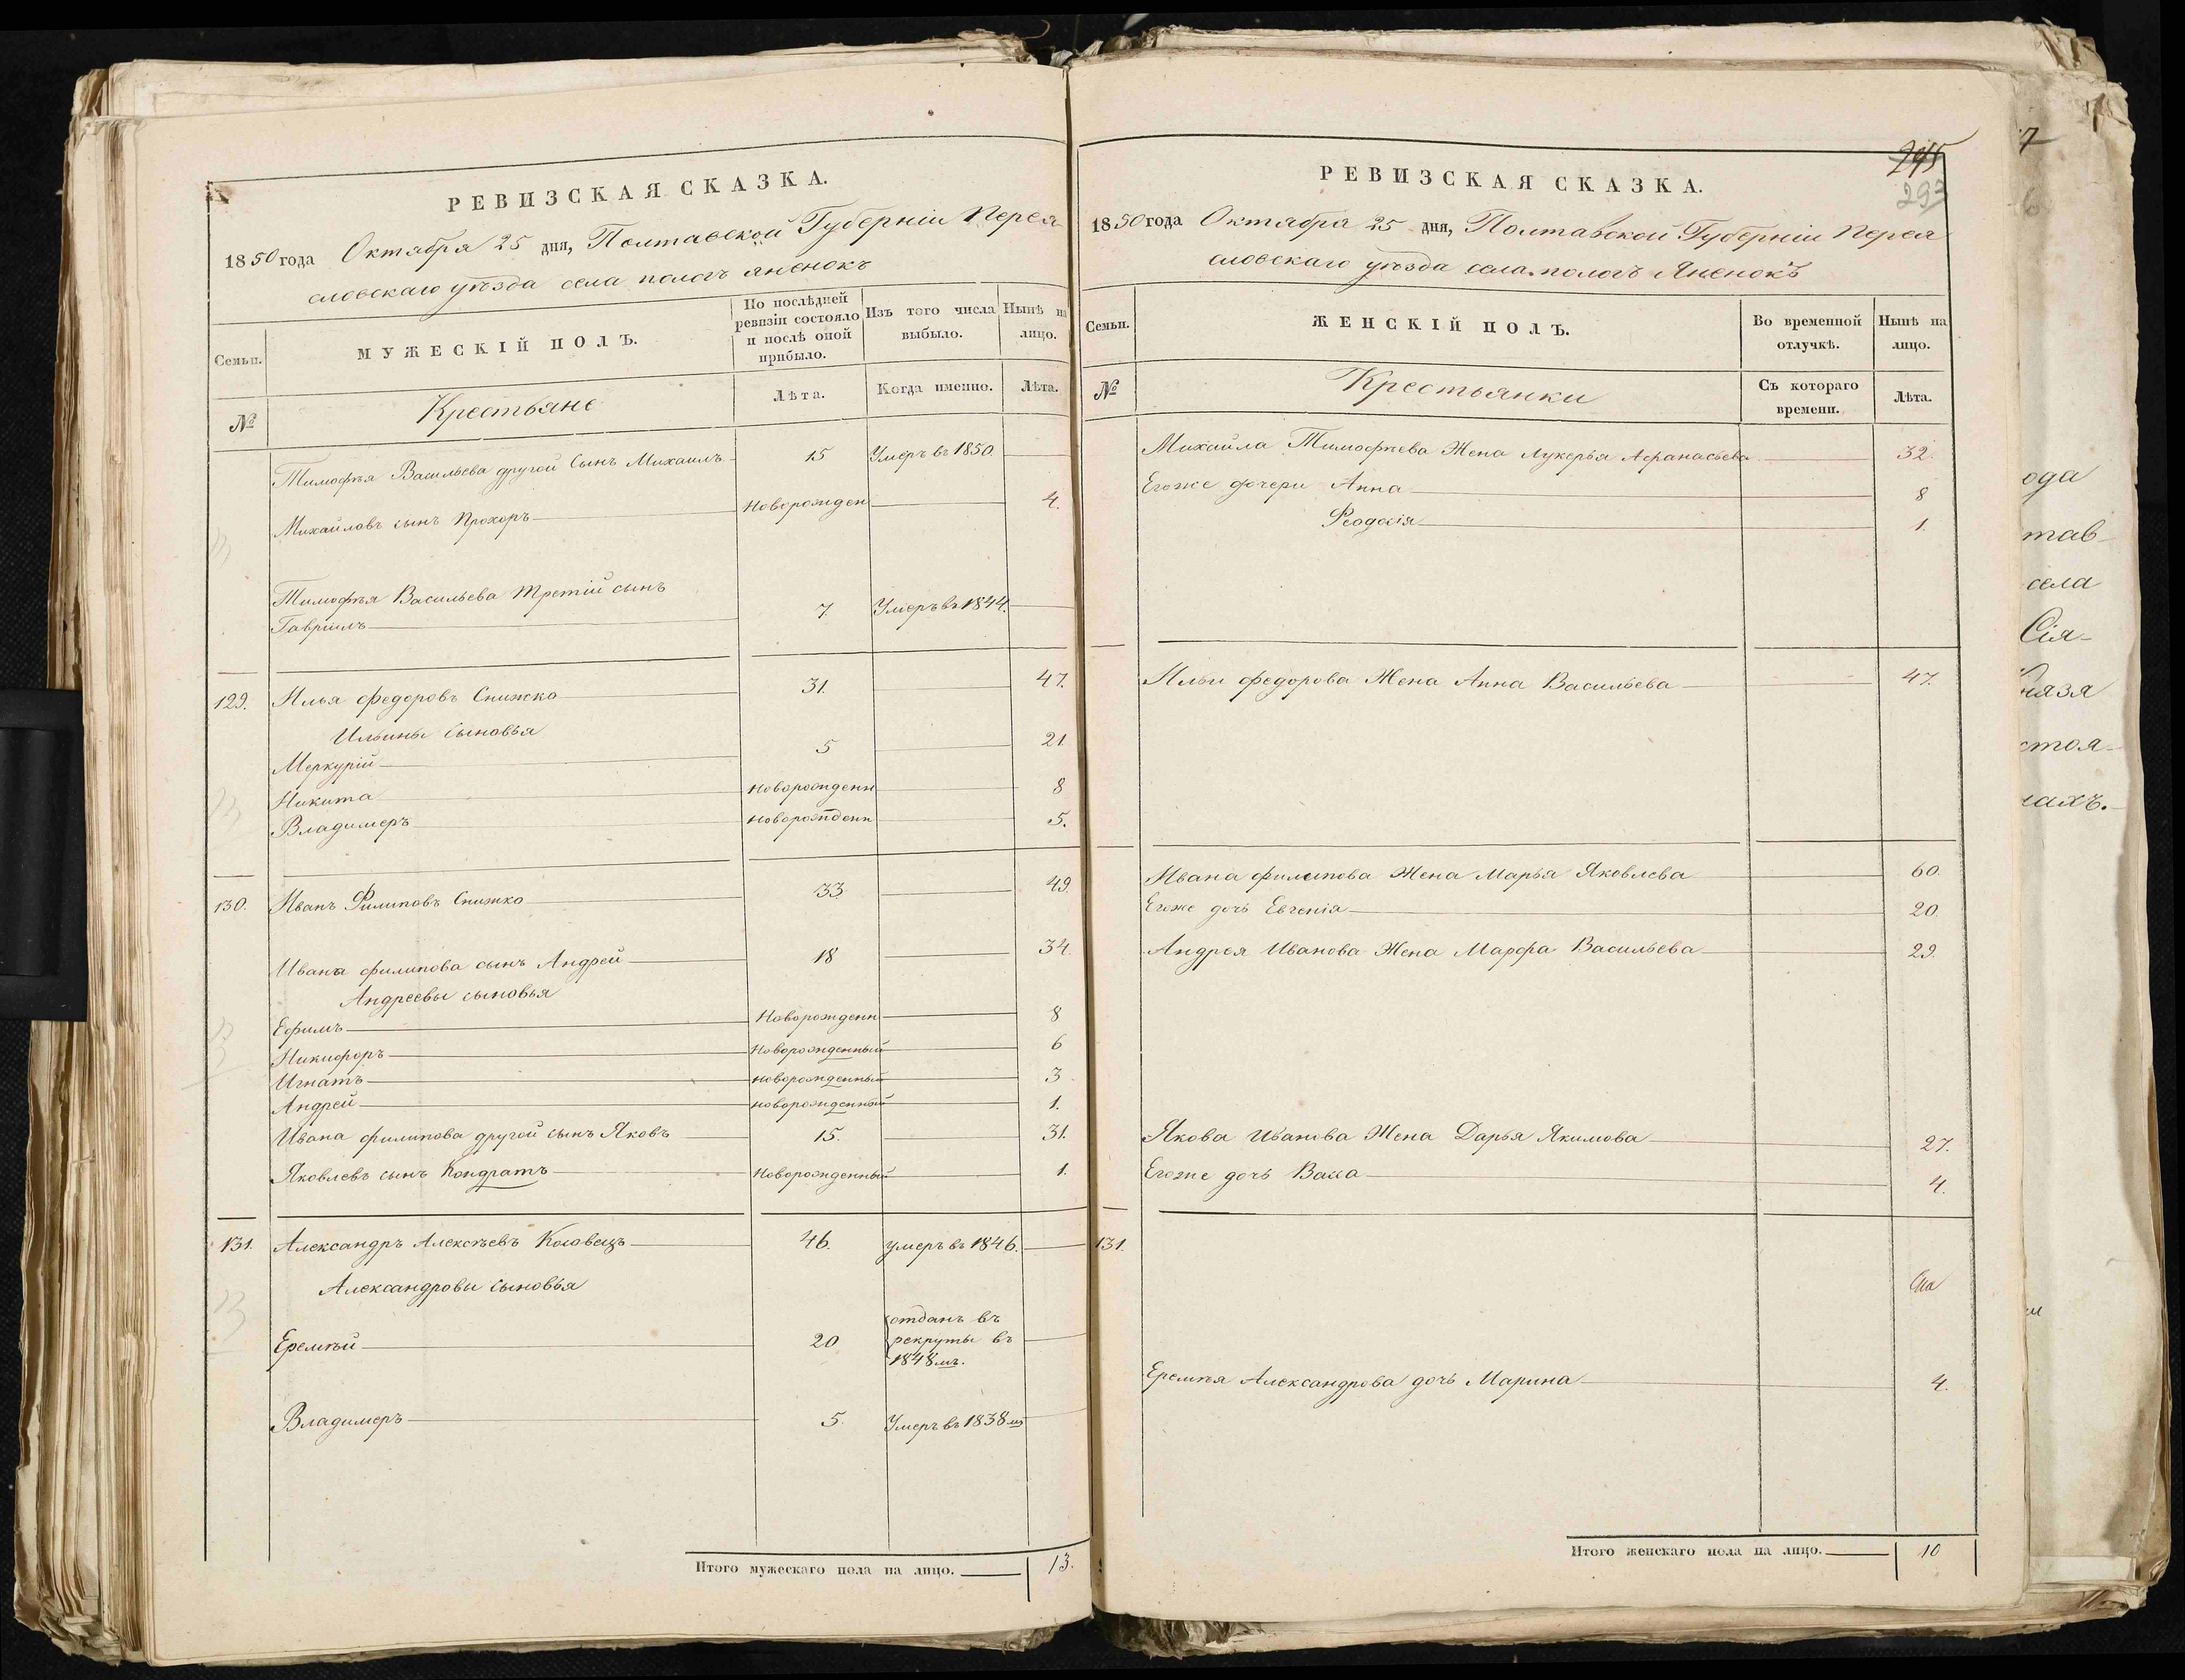 РЕВИЗСКАЯ СКАЗКА.
1850 года Октября 25 дня, Полтавской Губерніи Перея
словскаго уѣзда села пологъ яненокъ
Семьи.
МУЖЕСКІЙ ПОЛЪ.
По послѣдней
ревизіи состояло
и послѣ оной
прибыло.
Изъ того числа
выбыло.
Нынѣ на
лицо.
№
Крестьяне
Лѣта.
Когда именно.
Лѣта.
Тимофѣя Васильева другой Сынъ Михаилъ 15 Умеръ въ 1850.
Михайловъ сынъ Прохоръ Новорожден 4.
Тимофѣя Васильева третій сынъ
Гаврiилъ 7 Умеръ въ 1844.
129. Илья федоровъ Снижко 31. 47.
Ильины Сыновья
Меркурій 5 21.
Никита новорожденн 8
Владимеръ новорожденн 5.
130. Иванъ Филиповъ Снижко 33 49.
Ивана филипова сынъ Андрей 18 34.
Андреевы сыновья
Ефимъ Новорожденн 8
Никифоръ новорожденный 6
Игнатъ новорожденный 3
Андрей новорожденный 1.
Ивана филипова другой сынъ Яковъ 15. 31.
Яковлевъ сынъ Кондратъ Новорожденный 1.
131. Александръ Алексѣевъ 46. умеръ въ 1846.
Александровы Сыновья
Еремѣй 20 отданъ въ
рекруты въ
1848 мъ.
Владимеръ 5. Умеръ въ 1838 мъ
Итого мужескаго пола на лицо. 13.
245
297
РЕВИЗСКАЯ СКАЗКА.
1850 года Октября 25 дня, Полтавской Губерніи Перея
словскаго уѣзда села пологъ Яненокъ
Семьи.
ЖЕНСКІЙ ПОЛЪ.
Во временной
отлучкѣ.
Нынѣ на
лицо.
№
Крестьянки
Съ котораго
времени.
Лѣта.
Михайла Тимофѣева Жена Лукерья Афанасьева 32.
Егоже дочери Анна 8
Феодосія 1.
Ильи федорова Жена Анна Васильева 47.
Ивана филипова Жена Марья Яковлева 60.
Егоже дочь Евгенія 20.
Андрея Иванова Жена Марфа Васильева 29.
Якова Иванова Жена Дарья Якимова 27.
Егоже дочь Васса 4.
131.
Еремѣя Александрова дочь Марина 4.
Итого женскаго пола на лицо. 10
ода
тав
села
Сія
нязя
стоя
лахъ.